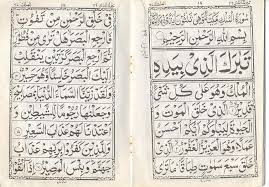 بِسْمِ اللهِ الرَّحْمٰنِ الرَّحِیْمِ
تَبٰرَكَ الَّذِیْ بِیَدِهِ
الْمُلْكُ وَهُوَ عَلٰی كُلِّ شَیْءٍ
قَدِیْرُ الَّذِیْ خَلَقَ الْمَوْتَ وَ
الْحَیٰوةَ لِیَبْلُوَكُمْ اَیُّكُمْ اَحْسَنُ
عَمَلًا وَهُوَ الْعَزِیْزُ الْغَفُوْرُ الَّذِیْ
خَلَقَ سَبْعَ سَمٰوٰتٍ طِبَاقًا مَا تَرٰی
فِیْ خَلْقِ الرَّحْمٰنِ مِنْ تَفٰوُتٍ
فَارْجِعِ الْبَصَرَ هَلْ تَرٰی مِنْ فُطُوْرٍ
ثُمَّ ارْجِعِ الْبَصَرَ كَرَّتَیْنِ یَنْقَلِبْ
اِلَیْكَ الْبَصَرُ خَاسِئًا وَّهُوَ حَسِیْرٌ
وَلَقَدْ زَیَّنَّا السَّمَآءَ الدُّنْیَا بِمَصَابِیْحَ
وَجَعَلْنٰهَا رُجُوْمًا لِّلشَّیٰطِیْنِ
وَاَعْتَدْنَا لَهُمْ عَذَابَ السَّعِیْرِ
وَلِلَّذِیْنَ كَفَرُوْا بِرَبِّهِمْ عَذَابُ
جَهَنَّمَ وَبِئْسَ الْمَصِیْرُ اِذَآ اُلْقُوْا